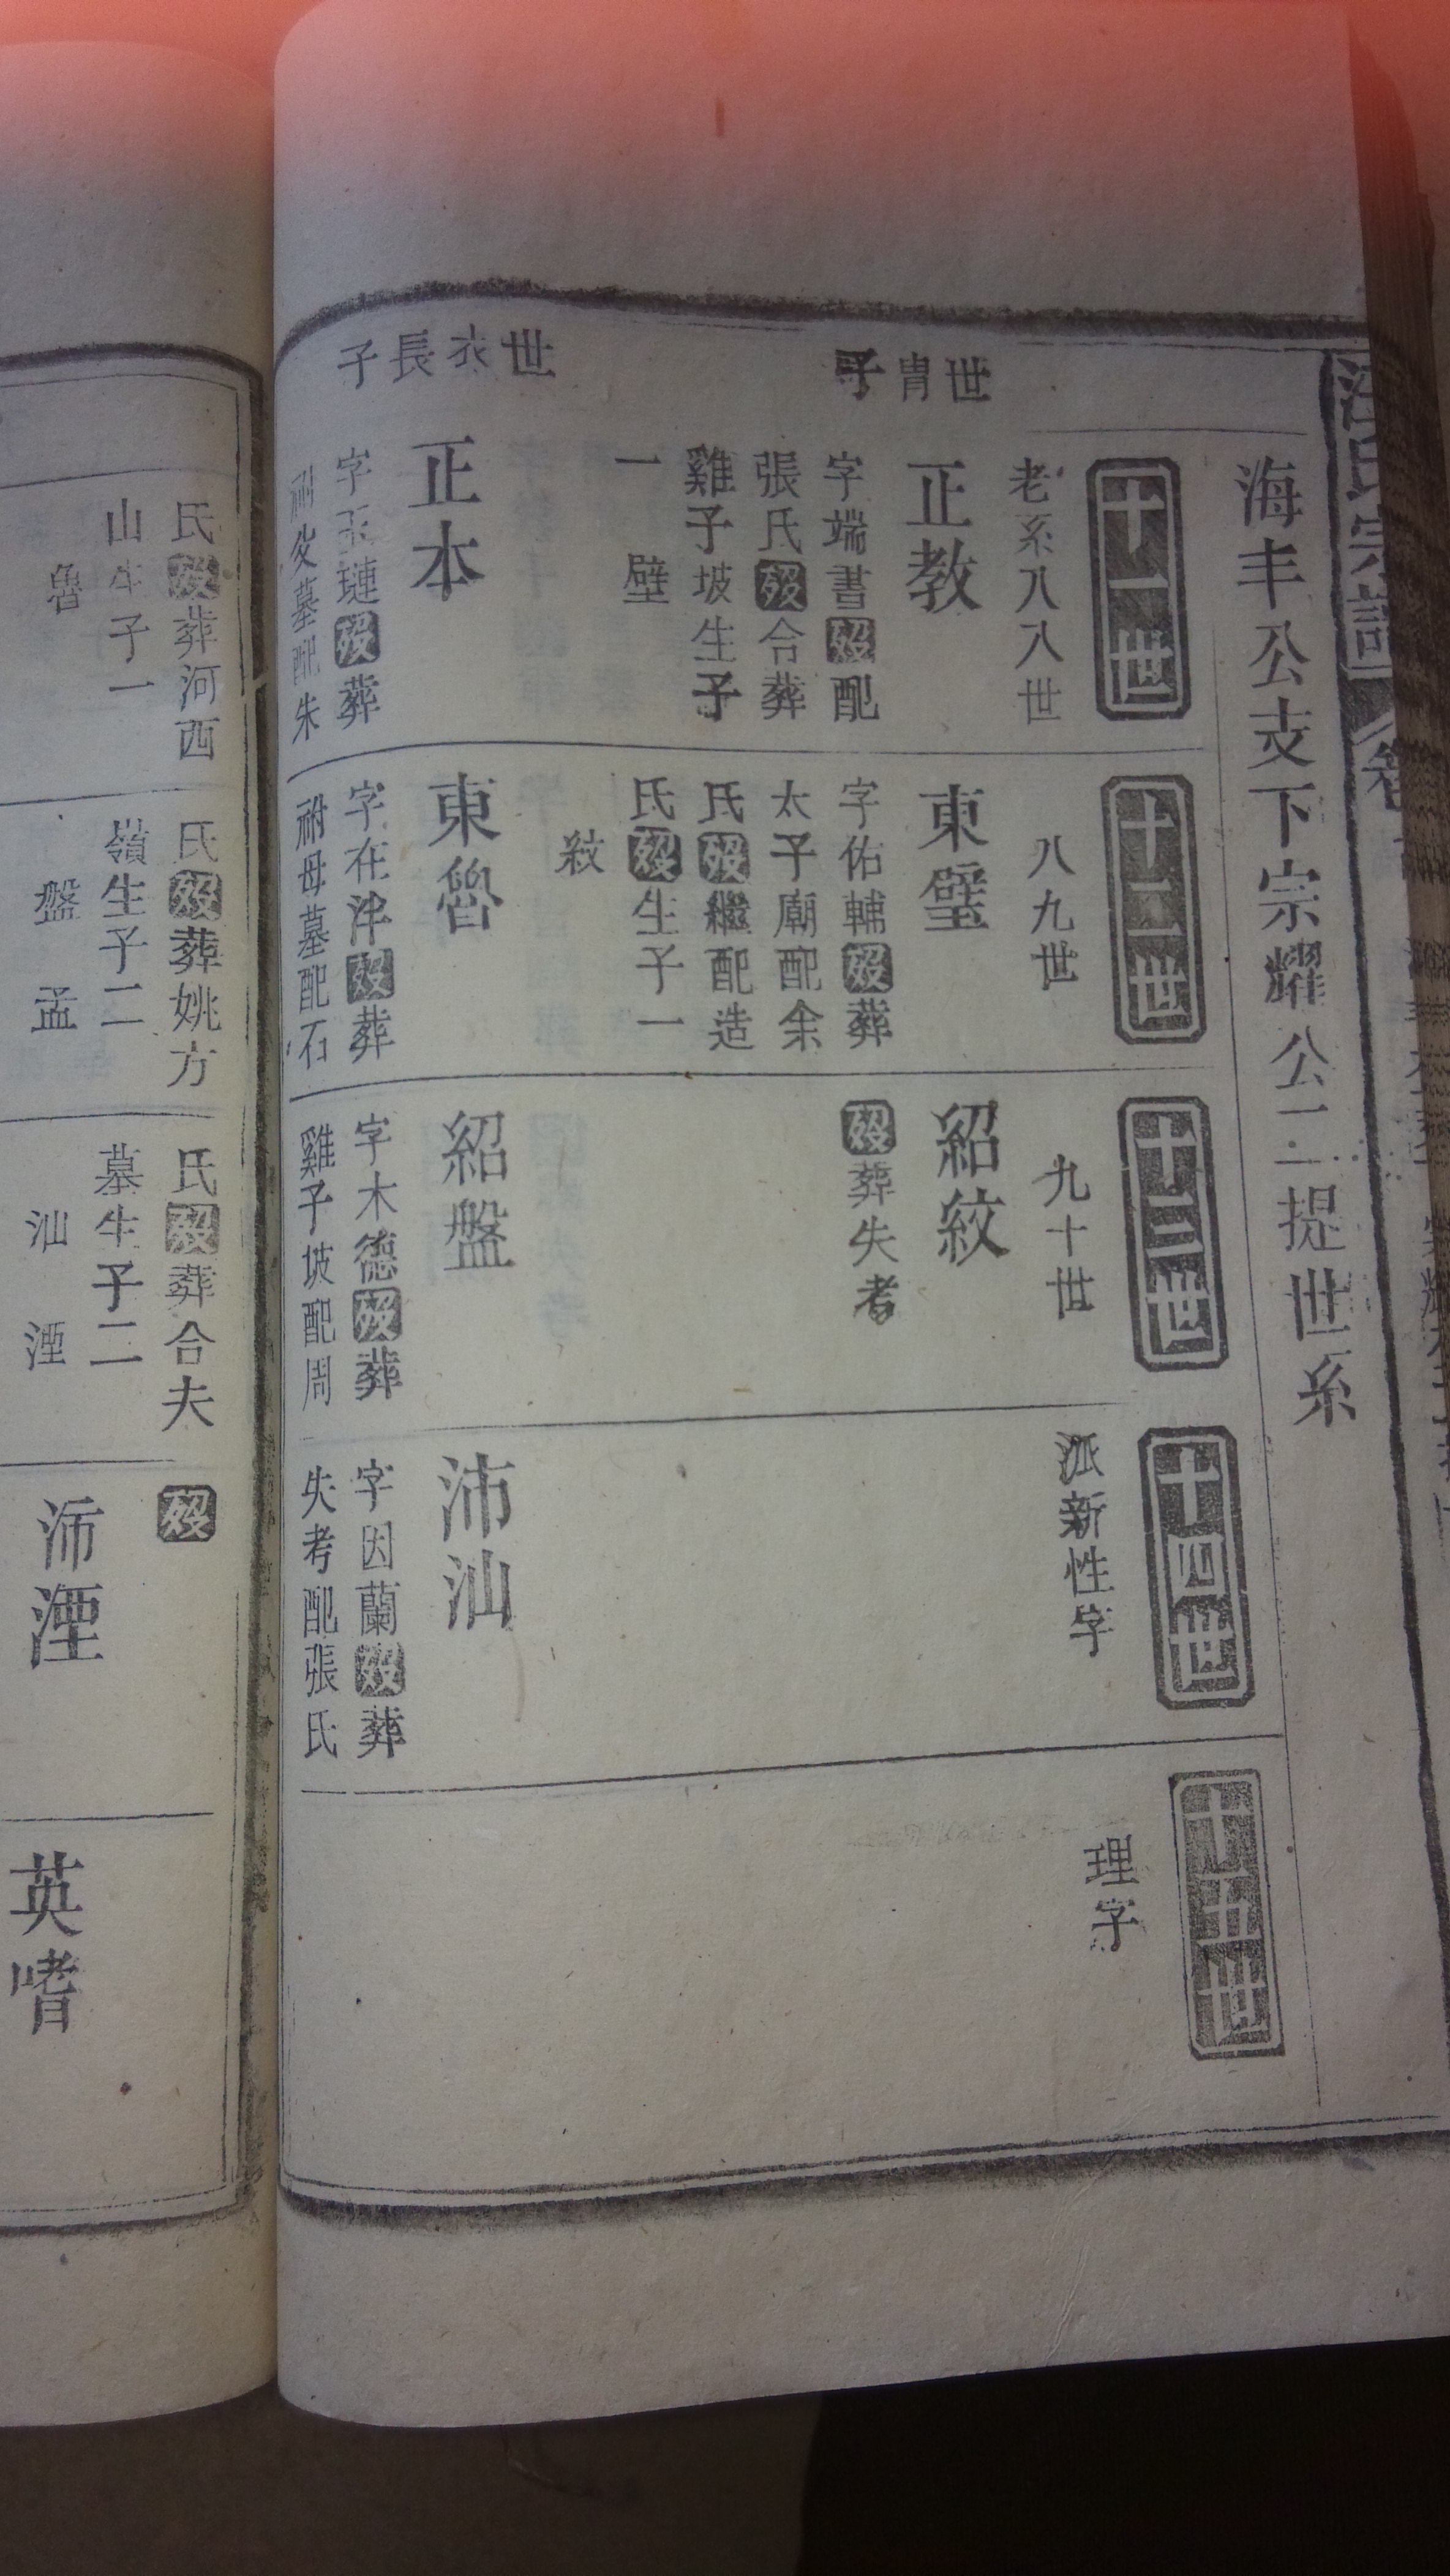 海丰公支下宗耀公二提世系
十一世
老系八八世
世胄子
正教
字端書歿配
張氏歿合葬
雞子坡生子
一
壁
世衣長子
正本
字玉璉歿葬
祔父墓配朱
十二世
八九世
東璧
字佑輔歿葬
太子廟配余
氏歿繼配造
氏歿生子一
紋
東魯
字在泮歿葬
祔母墓配石
十三世
九十世
紹紋
歿葬失考
紹盤
字木德歿葬
雞子坡配周
十四世
派新性字
沛汕
字因蘭歿葬
失考配張氏
十五世
理字
氏歿葬河西
山生子一
魯
氏歿葬姚方
嶺生子二
盤 孟
氏歿葬合夫
墓生子二
汕 湮
歿
沛湮
英嗜